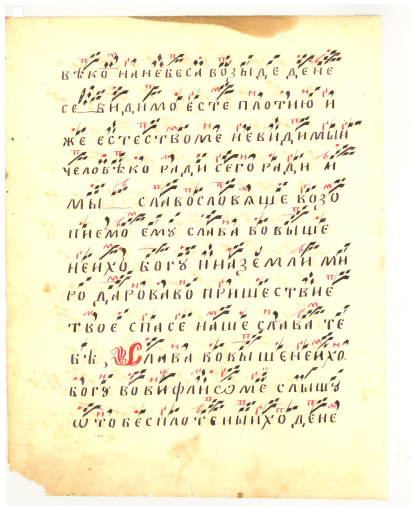 вѣко нанебеса возыде дене
се видимо есте плотию и
же естествоме невидимыи
человѣко ради сего ради и
мы славословяще возо
пиемо ему слава во выше
неихо богу и на земли ми
ро дарова во пришествие
твое спасе наше слава те
бѣ, Слава во вышенеихо
богу во вифлиѡме слышу
ѿ то бесплотеныихо дене